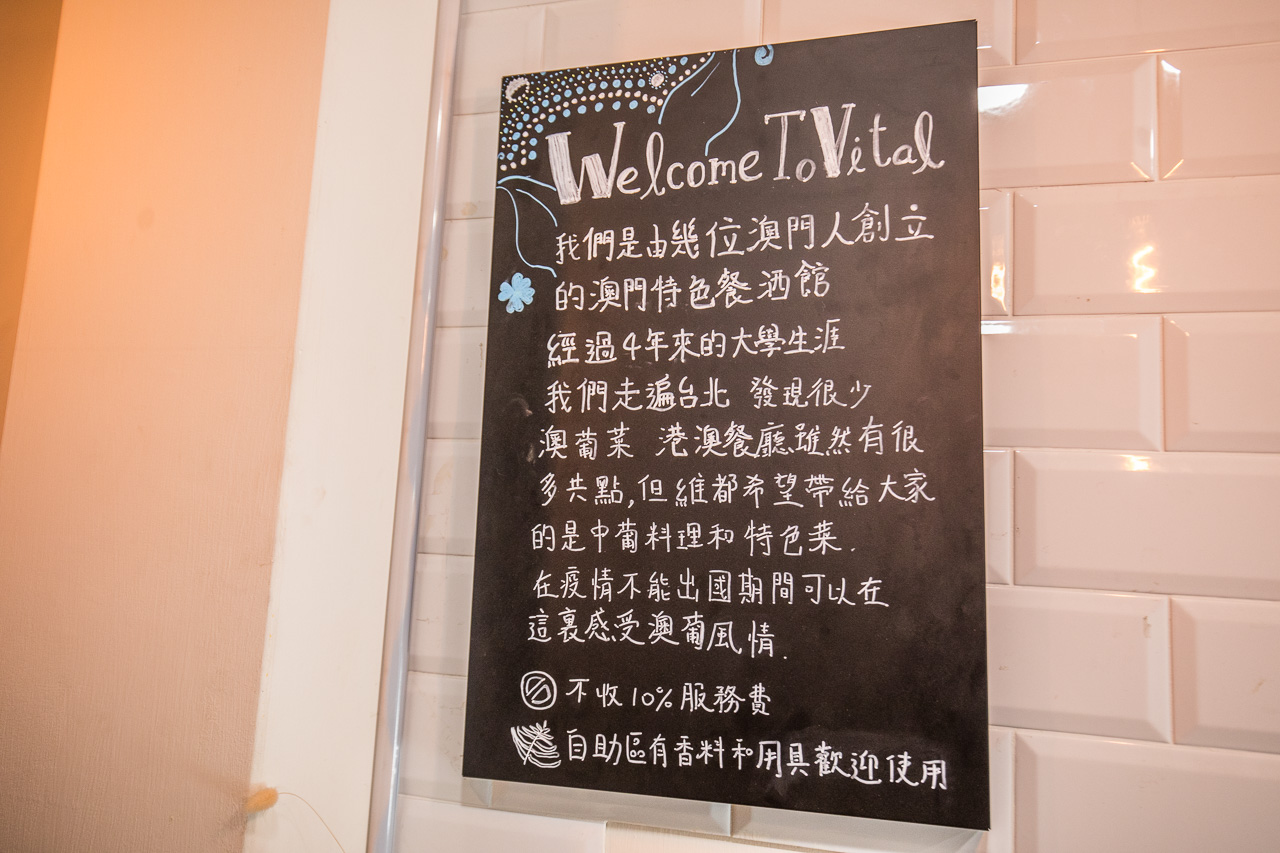 Welcome To Vital
我們是由幾位澳門人創立
的澳門特色餐酒館
經過4年來的大學生涯
我們走遍台北 發現很少
澳葡菜 港澳餐廳雖然有很
多共點,但維都希望帶給大家
的是中葡料理和特色菜.
在疫情不能出國期間可以在
這裏感受澳葡風情.
不收10%服務費
自助區有香料和用具歡迎使用